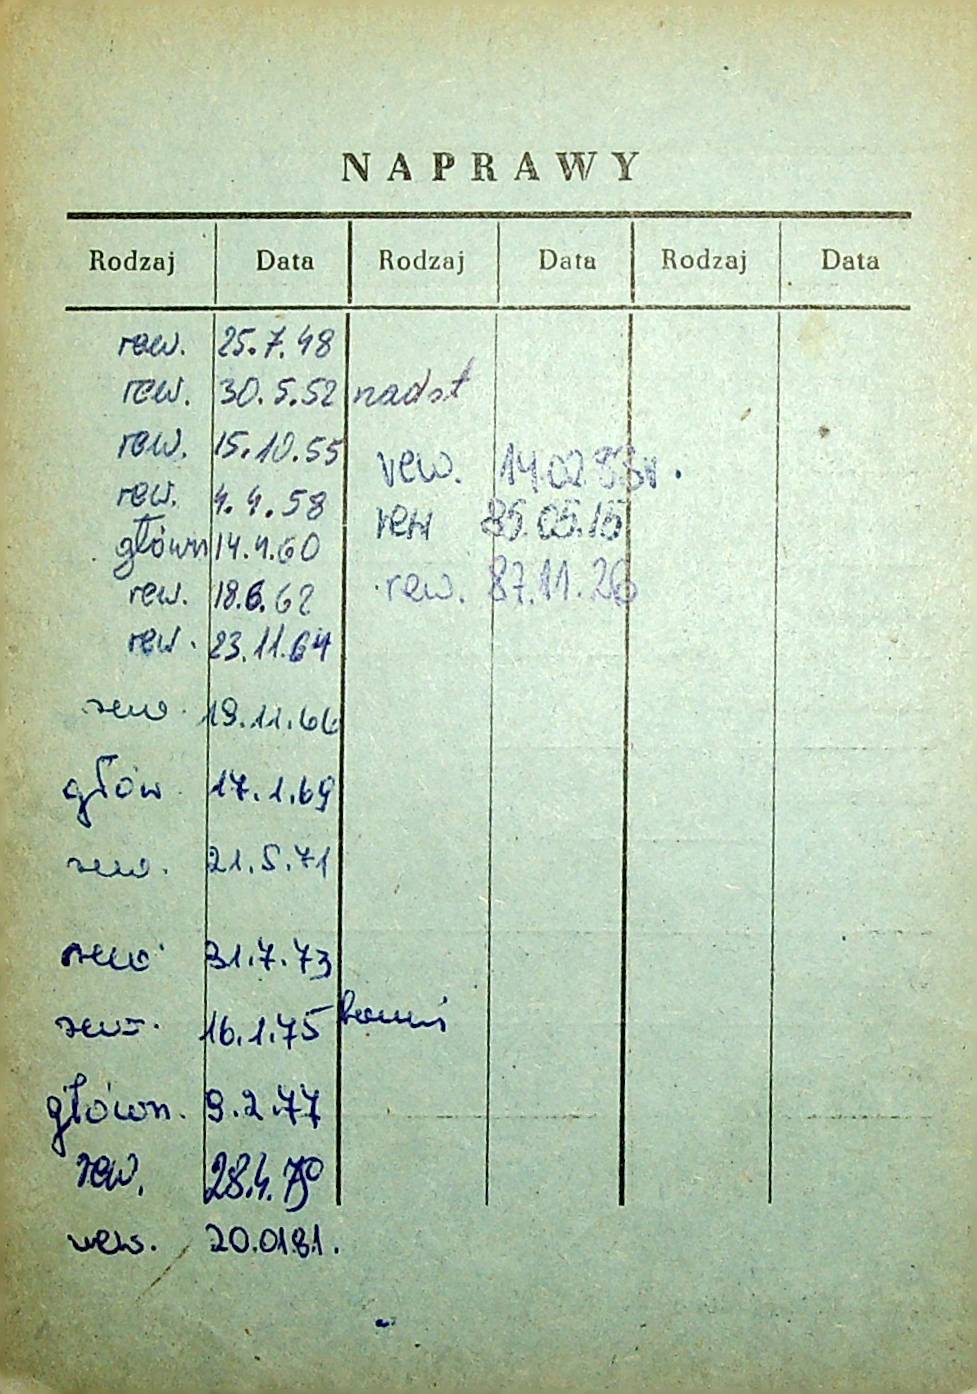 NAPRAWY
Rodzaj Data Rodzaj Data Rodzaj Data
rew. 25.7.48
rew. 30.5.52 nadst
rew. 15.10.55
rew. 14.02.83r.
rew. 4.4.58
rew 85.05.15
główn 14.4.60
rew. 18.6.62
rew. 87.11.26
rew. 23.11.64
rew. 19.11.66
głów 17.1.69
rew. 21.5.71
rew 31.7.73
rew. 16.1.75
główn. 9.2.77
rew. 28.4.79
rew. 20.01.81.